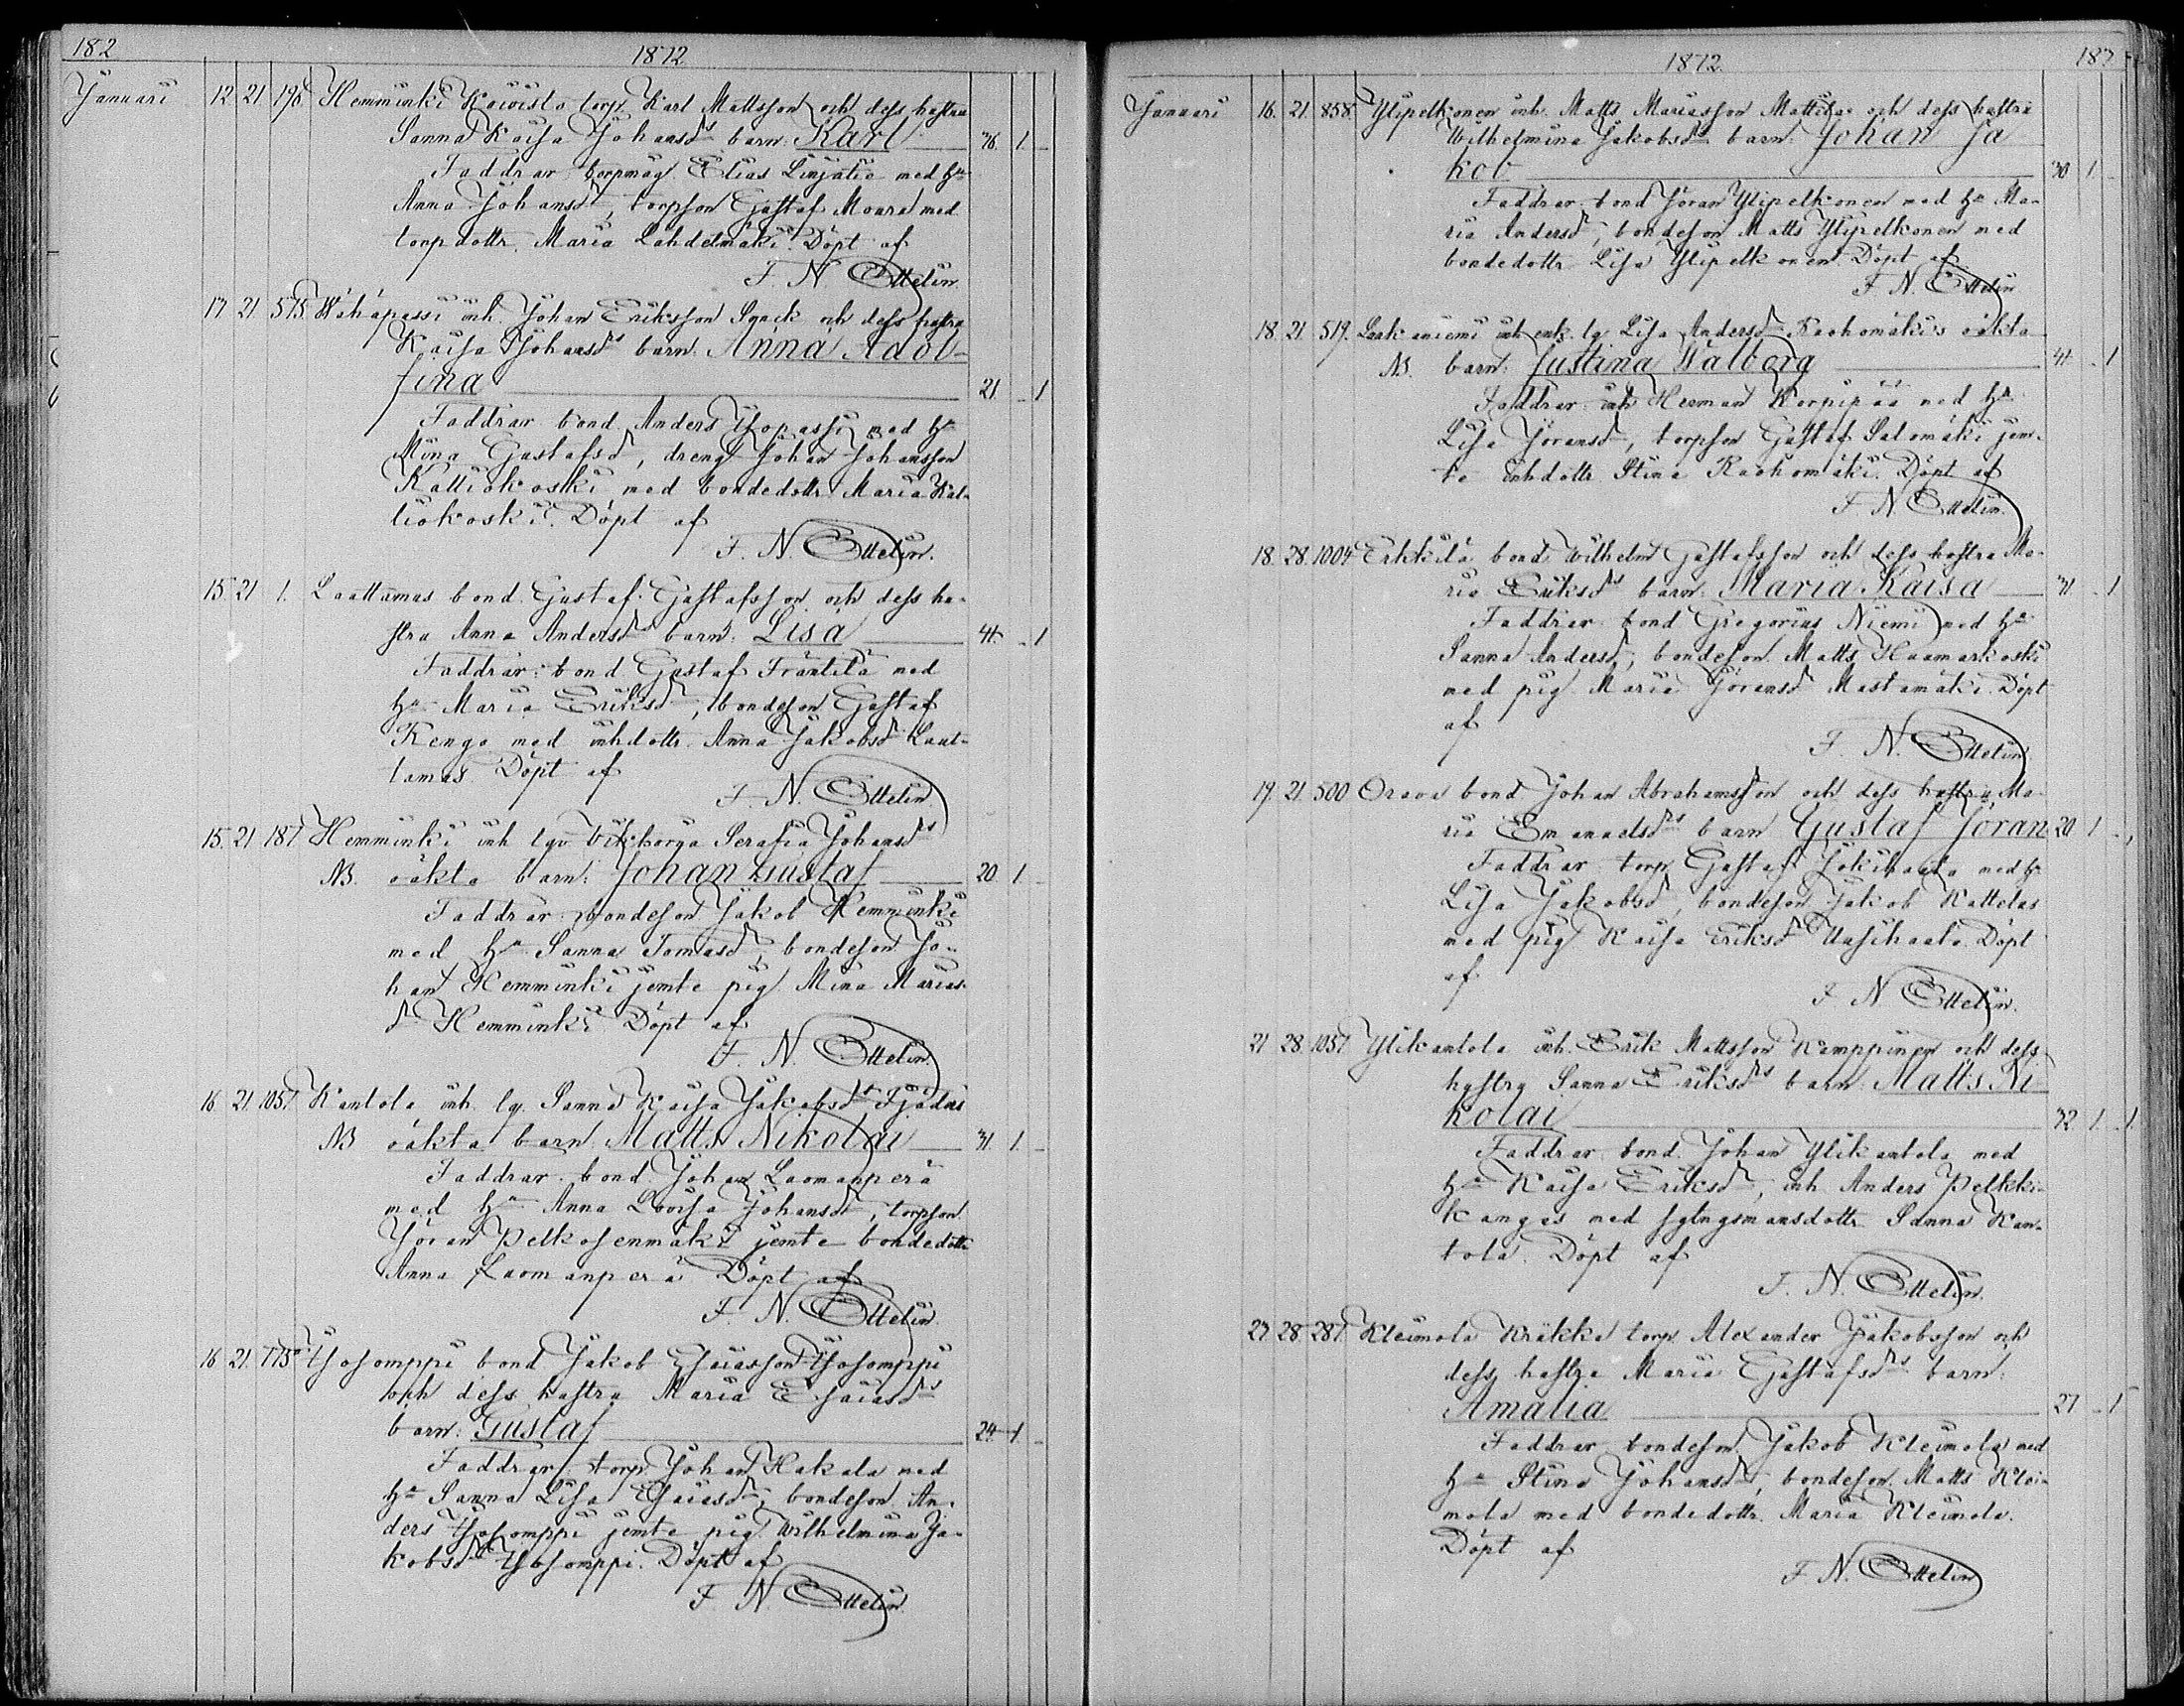 182
1872
Januari 12 21 198 Hemminki Koivisto torp. Karl Mattsson och dess hustru
Sanna Kaisa Johansdrs barn: Karl 36. 1. -
Faddrar: torpmåg Elias Linjatie med hu
Anna Johansdr, torpson Gustaf Moura med
torpdottr. Maria Lahdelmäki. Döpt af
F. N. Ottelin.
17 21 575. Wähäpassi inh. Johan Eriksson Spack och dess hustru
Kaisa Johansdrs barn. Anna Adol-
fina 21. - 1
Faddrar bond. Anders Yopassi med hu
Mina Gustafsdr, dreng Johan Johansson
Kalliokoski med bondedottr. Maria Kal-
liokoski. Döpt af
F. N. Ottelin.
15. 21 1. Laattumas bond. Gustaf Gustafsson och dess hu-
stru Anna Andersdrs barn: Lisa 41. - 1
Faddrar: bond Gustaf Fräntilä med
hu Maria Eriksdr, bondeson Gustaf
Kengo med inhdottr. Anna Jakobsdr Laut-
tamas. Döpt af
F. N. Ottelin.
15. 21 187 Hemminki inh. lqv. Serafia Johansdrs
NB. oäkta barn: Johan Gustaf 20. 1. -
Faddrar: bondeson Jakob Hemminki
med hu Sanna Tomasdr, bondeson Jo-
han Hemminki jemte pig. Mina Marias-
dr Hemminki Döpt af
F. N. Ottelin.
16. 21. 1057 Kantola inh. lq. Sanna Kaisa Jakobsdr
NB oäkta barn. Matts Nikolai 31. 1. -
Faddrar. bond. Johan Laomanperä
med hu Anna Lovisa Johansdr, torpson
Jöran Pelkosenmäki jemte bondedottr
Anna Laomanperä Döpt af
F. N. Ottelin.
16 21. 775 Yosomppi bond Jakob Esaiasson Yosomppi
och dess hustru Maria Esaiasdrs
barn: Gustaf 24 1. -
Faddrar: torp. Johan Hakala med
hu Sanna Lisa Esaiasdr, bondeson An-
ders Yosomppi jemte pig. Wilhelmina Ja-
kobsdr Yosomppi. Döpt af
F. N. Ottelin.
1872.
183
Januari 16. 21. 858. Ylipelkonen inh. Matts Mariasson Mattilas och dess hustru
Wilhelmina Jakobsdrs barn: Johan Ja
kob 30 1 -
Faddrar: bond Jöran Ylipelkonen med hu Ma-
ria Andersdr, bondeson Matts Ylipelkonen med
bondedottr Lisa Ylipelkonen. Döpt af
F. N. Ottelin
18. 21. 519. Laakaniemi inh enk. lq Lisa Andersdr Raohomäkis oäkta
NB. barn: Justina Walborg 41 - 1
Faddrar: inh Herman Korpipää med hu
Lisa Jöransdr, torpson Gustaf Salomäki jem-
te inhdottr Stina Raohomäki. Döpt af
F. N. Ottelin.
18. 28. 1004 Erkkilä bond. Wilhelm Gustafsson och dess hustru Ma-
ria Eriksdrs barn: Maria Kaisa 31 - 1
Faddrar bond Gregorius Niemi med hu
Sanna Andersdr, bondeson Matts Haamarkoski
med pig. Maria Jöransdr Mastamäki. Döpt
af
F. N. Ottelin
19. 21. 500 Orava bond Johan Abrahamsson och dess hustru Ma-
ria Emanuelsdrs barn Gustaf Jöran 20 1 -
Faddrar torp. Gustaf Jokihaara med hu
Lisa Jakobsdr, bondeson Jakob Kattelas
med pig Kaisa Eriksdr Uusihaala. Döpt
af
F. N. Ottelin.
21 28. 1057 Ylikantola inh. Erik Mattsson Kamppinen och dess
hustru Sanna Eriksdrs barn: Matts Ni
kolai 32 1. - 1.
Faddrar: bond. Johan Ylikantola med
hu Kaisa Eriksdr, inh. Anders Pelkki-
kangas med sytngsmansdottr Sanna Kan-
tola. Döpt af
F. N. Ottelin.
27 28 287. Kleimola Kräkka torp. Alexander Jakobsson och
dess hustru Maria Gustafsdrs barn:
Amalia 27 - 1
Faddrar: bondeson Jakob Kleimola med
hu Stina Johansdr, bondeson Matts Klei-
mola med bondedottr. Maria Kleimola.
Döpt af
F. N. Ottelin